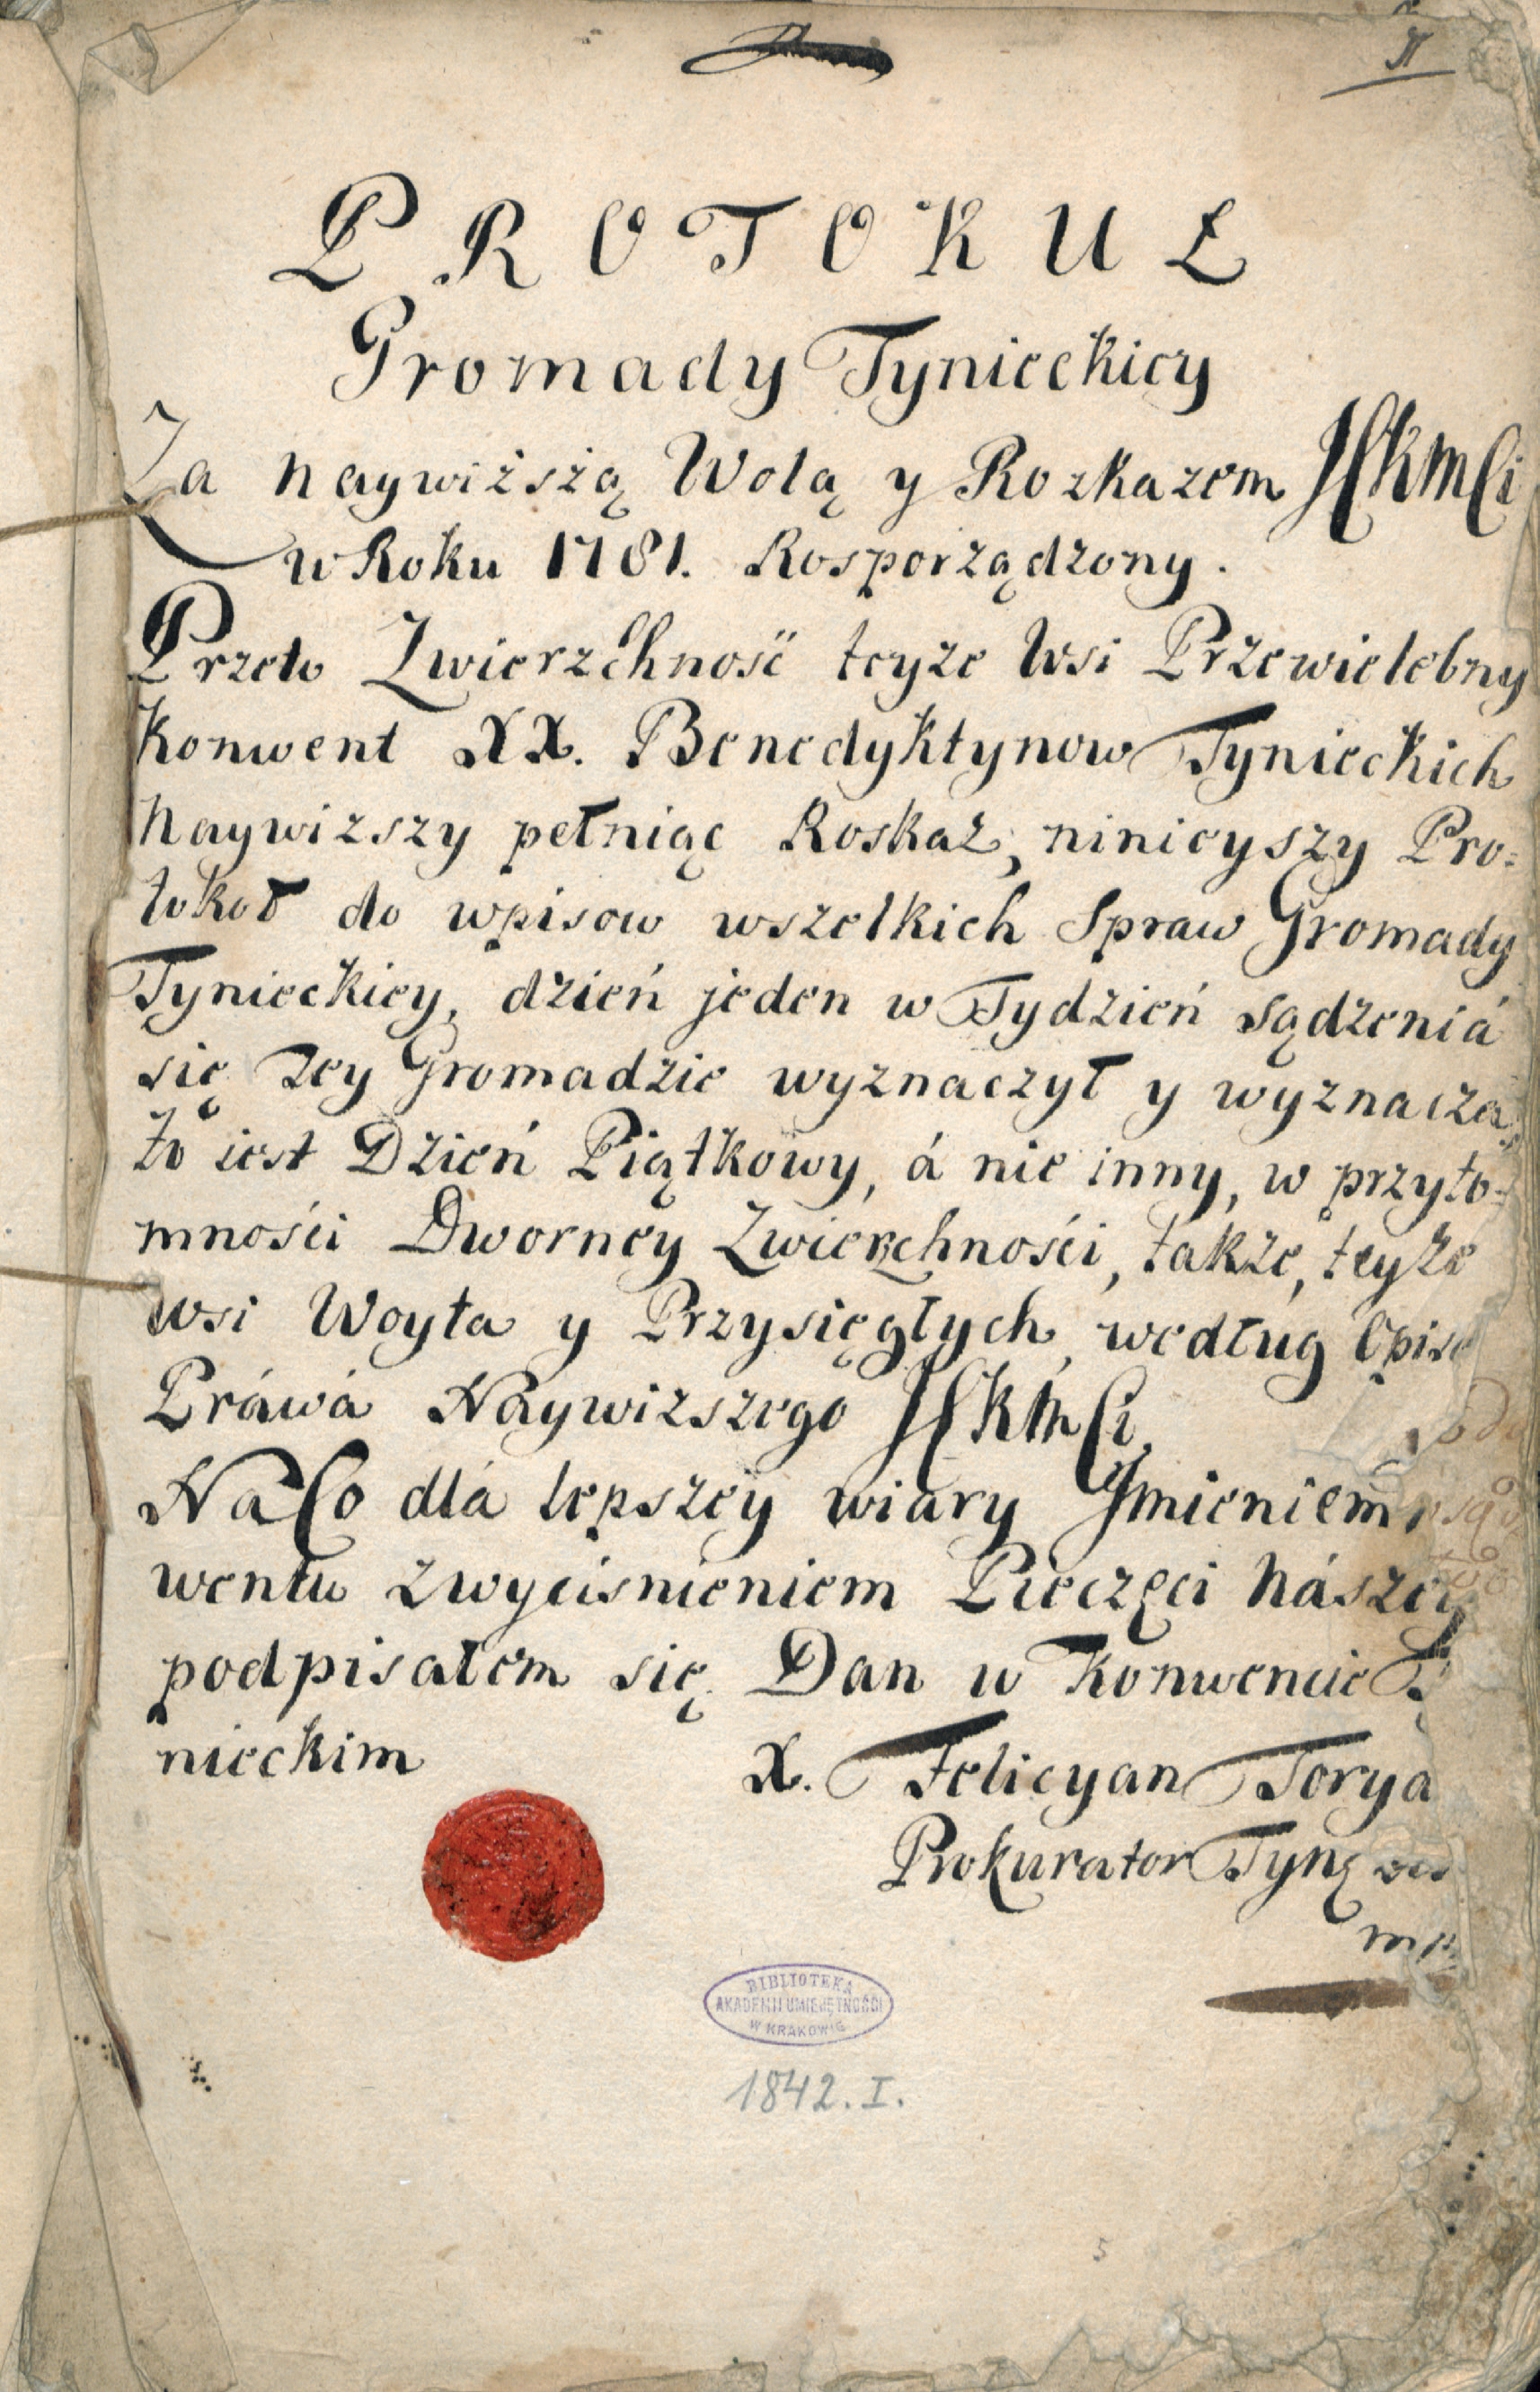 PROTOKUŁ
Gromady Tynieckiey
Za naywiższą Wolą y Rozkazem JCKMCi
w Roku 1781. Rosporządzony.
Przeto Zwierzchność teyże Wsi Przewielebny
Konwent XX. Benedyktynow Tynieckich
Naywizszy pełniąc Roskaz, ninieyszy Pro=
tokoł do wpisow wszelkich Spraw Gromady
Tynieckiey, dzień jeden w Tydzień sądzeniá
się Tey Gromadzie wyznaczył y wyznacza,
to iest Dzień Piątkowy, á nie inny, w przyto=
mności Dworney Zwierzchności, także, teyże
wsi Woyta y Przysięgłych, według Opisu
Práwá Naywizszego JCKMCi,
Na Co dlá lepszey wiary Jmieniem
wentu zwyciśnieniem Pieczęci Nászey
podpisałem się. Dan w Konwencie
nieckim
X. Felicyan Torya
Prokurator Tyn
mp
BIBLIOTEKA
AKADEMII UMIEJĘTNOŚCI
W KRAKOWIE
1842. I.
5